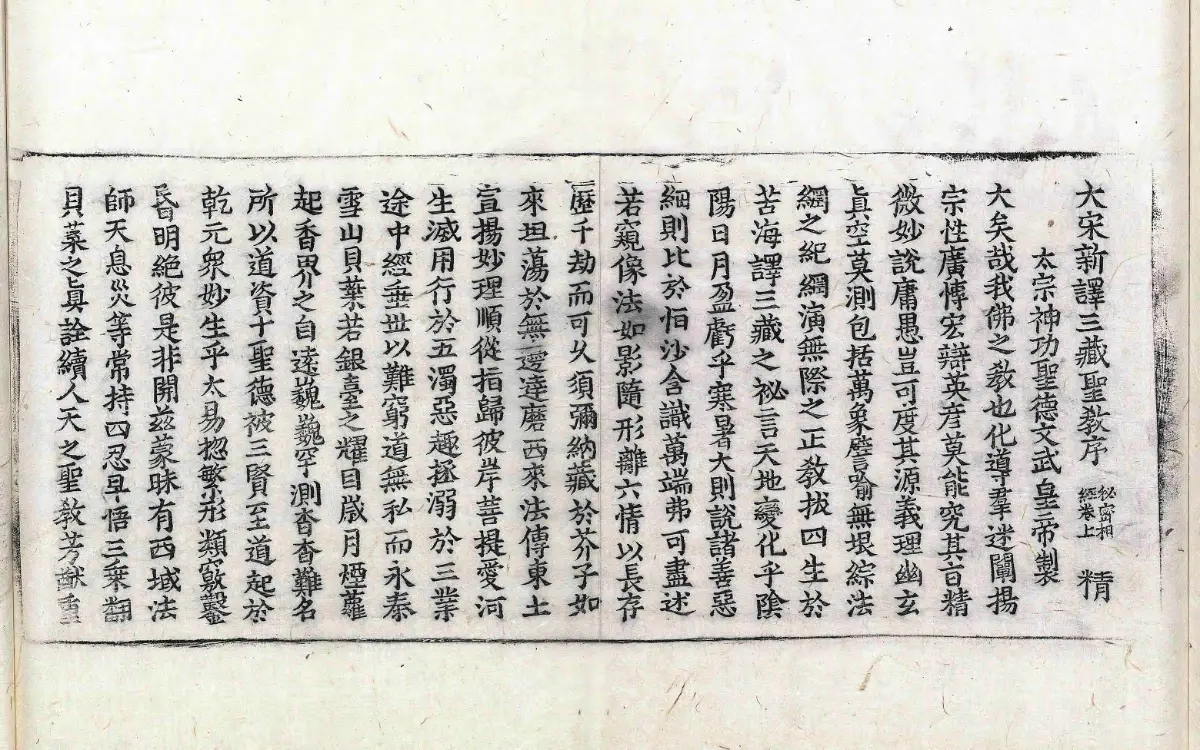 大宋新譯三藏聖教序 秘密相經卷上 精
太宗神功聖德文武皇帝製
大矣哉我佛之教也化導羣迷闡揚
宗性廣慱宏辯英彦莫能究其旨精
微妙說庸愚豈可度其源義理幽玄
眞空莫測包括萬象譬喻無垠綜法
網之紀綱演無際之正教拔四生於
苦海譯三藏之祕言天地變化乎陰
陽日月盈虧乎寒暑大則說諸善惡
細則比於恒沙含識萬端弗可盡述
若窺像法如影隨形離六情以長存
歷千劫而可久須彌納藏於芥子如
來坦蕩於無邊達磨西來法傳東土
宣揚妙理順從指歸彼岸菩提愛河
生滅用行於五濁惡趣拯溺於三業
途中經垂世以難窮道無私而永泰
雪山貝葉若銀臺之耀目歲月煙蘿
起香界之自遠巍巍罕測杳杳難名
所以道資十聖德被三賢至道起於
乾元衆妙生乎太易揔繁形類竅鑿
昏明絕彼是非開茲蒙昧有西域法
師天息災等常持四忍早悟三乘翻
貝葉之眞詮續人天之聖教芳猷重